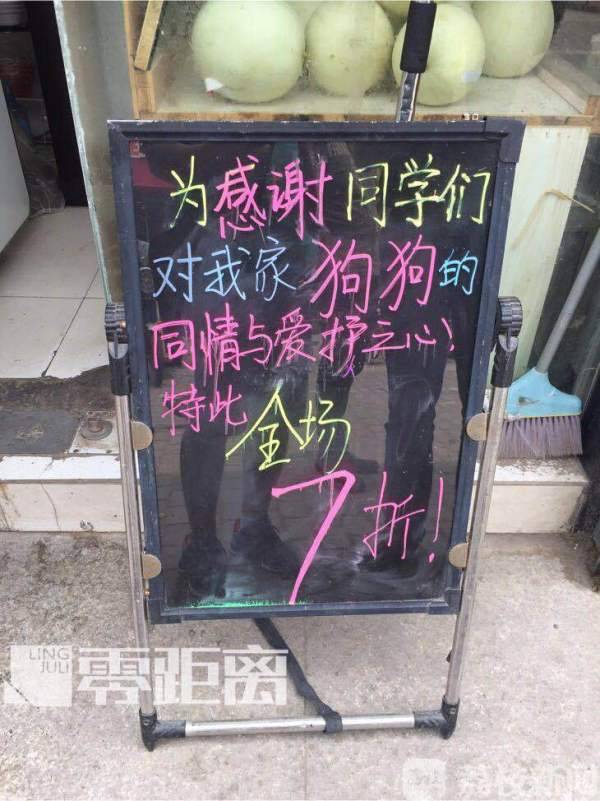 为感谢同学们
对我家狗狗的
同情与爱护之心！
特此
全场
7折！
LING
JULI
零距离
荔枝新闻